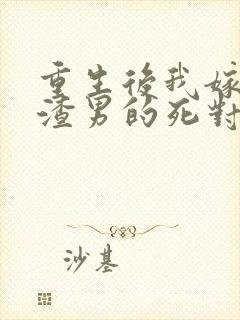 重生後我嫁
渣男的死對
沙基